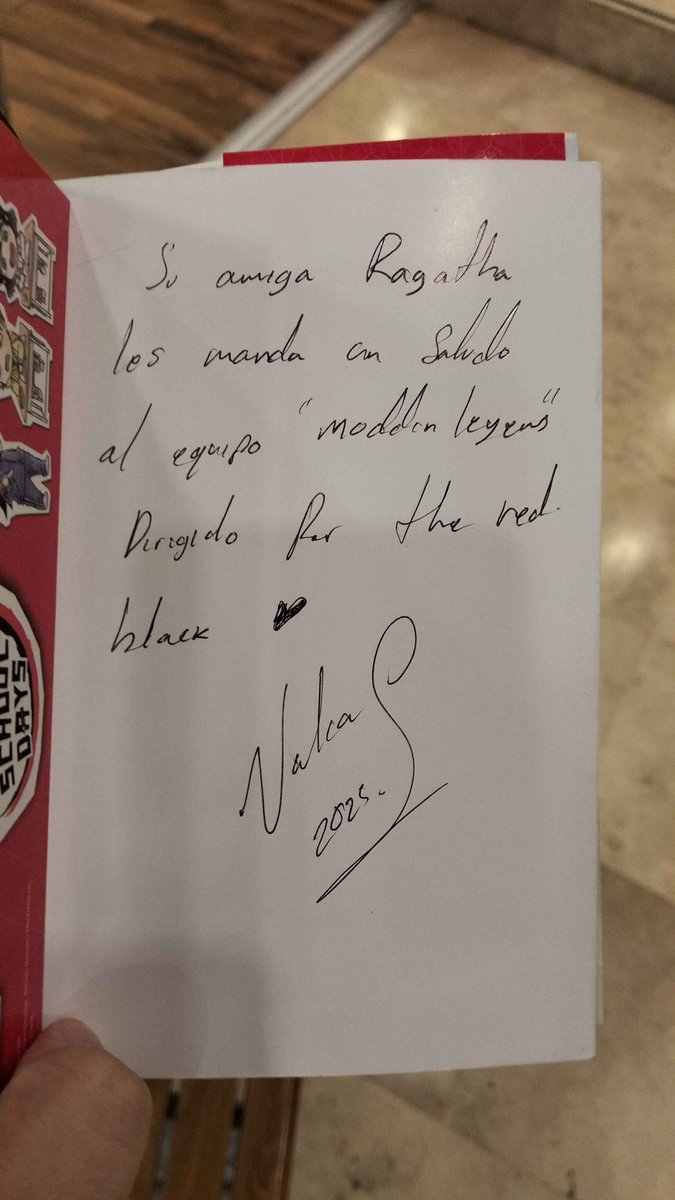 Su amiga Ragatha
les manda un Saludo
al equipo "moddin leyens"
Dirigido Por the red
black
Naka S
2025.
SCHOOL
DAYS